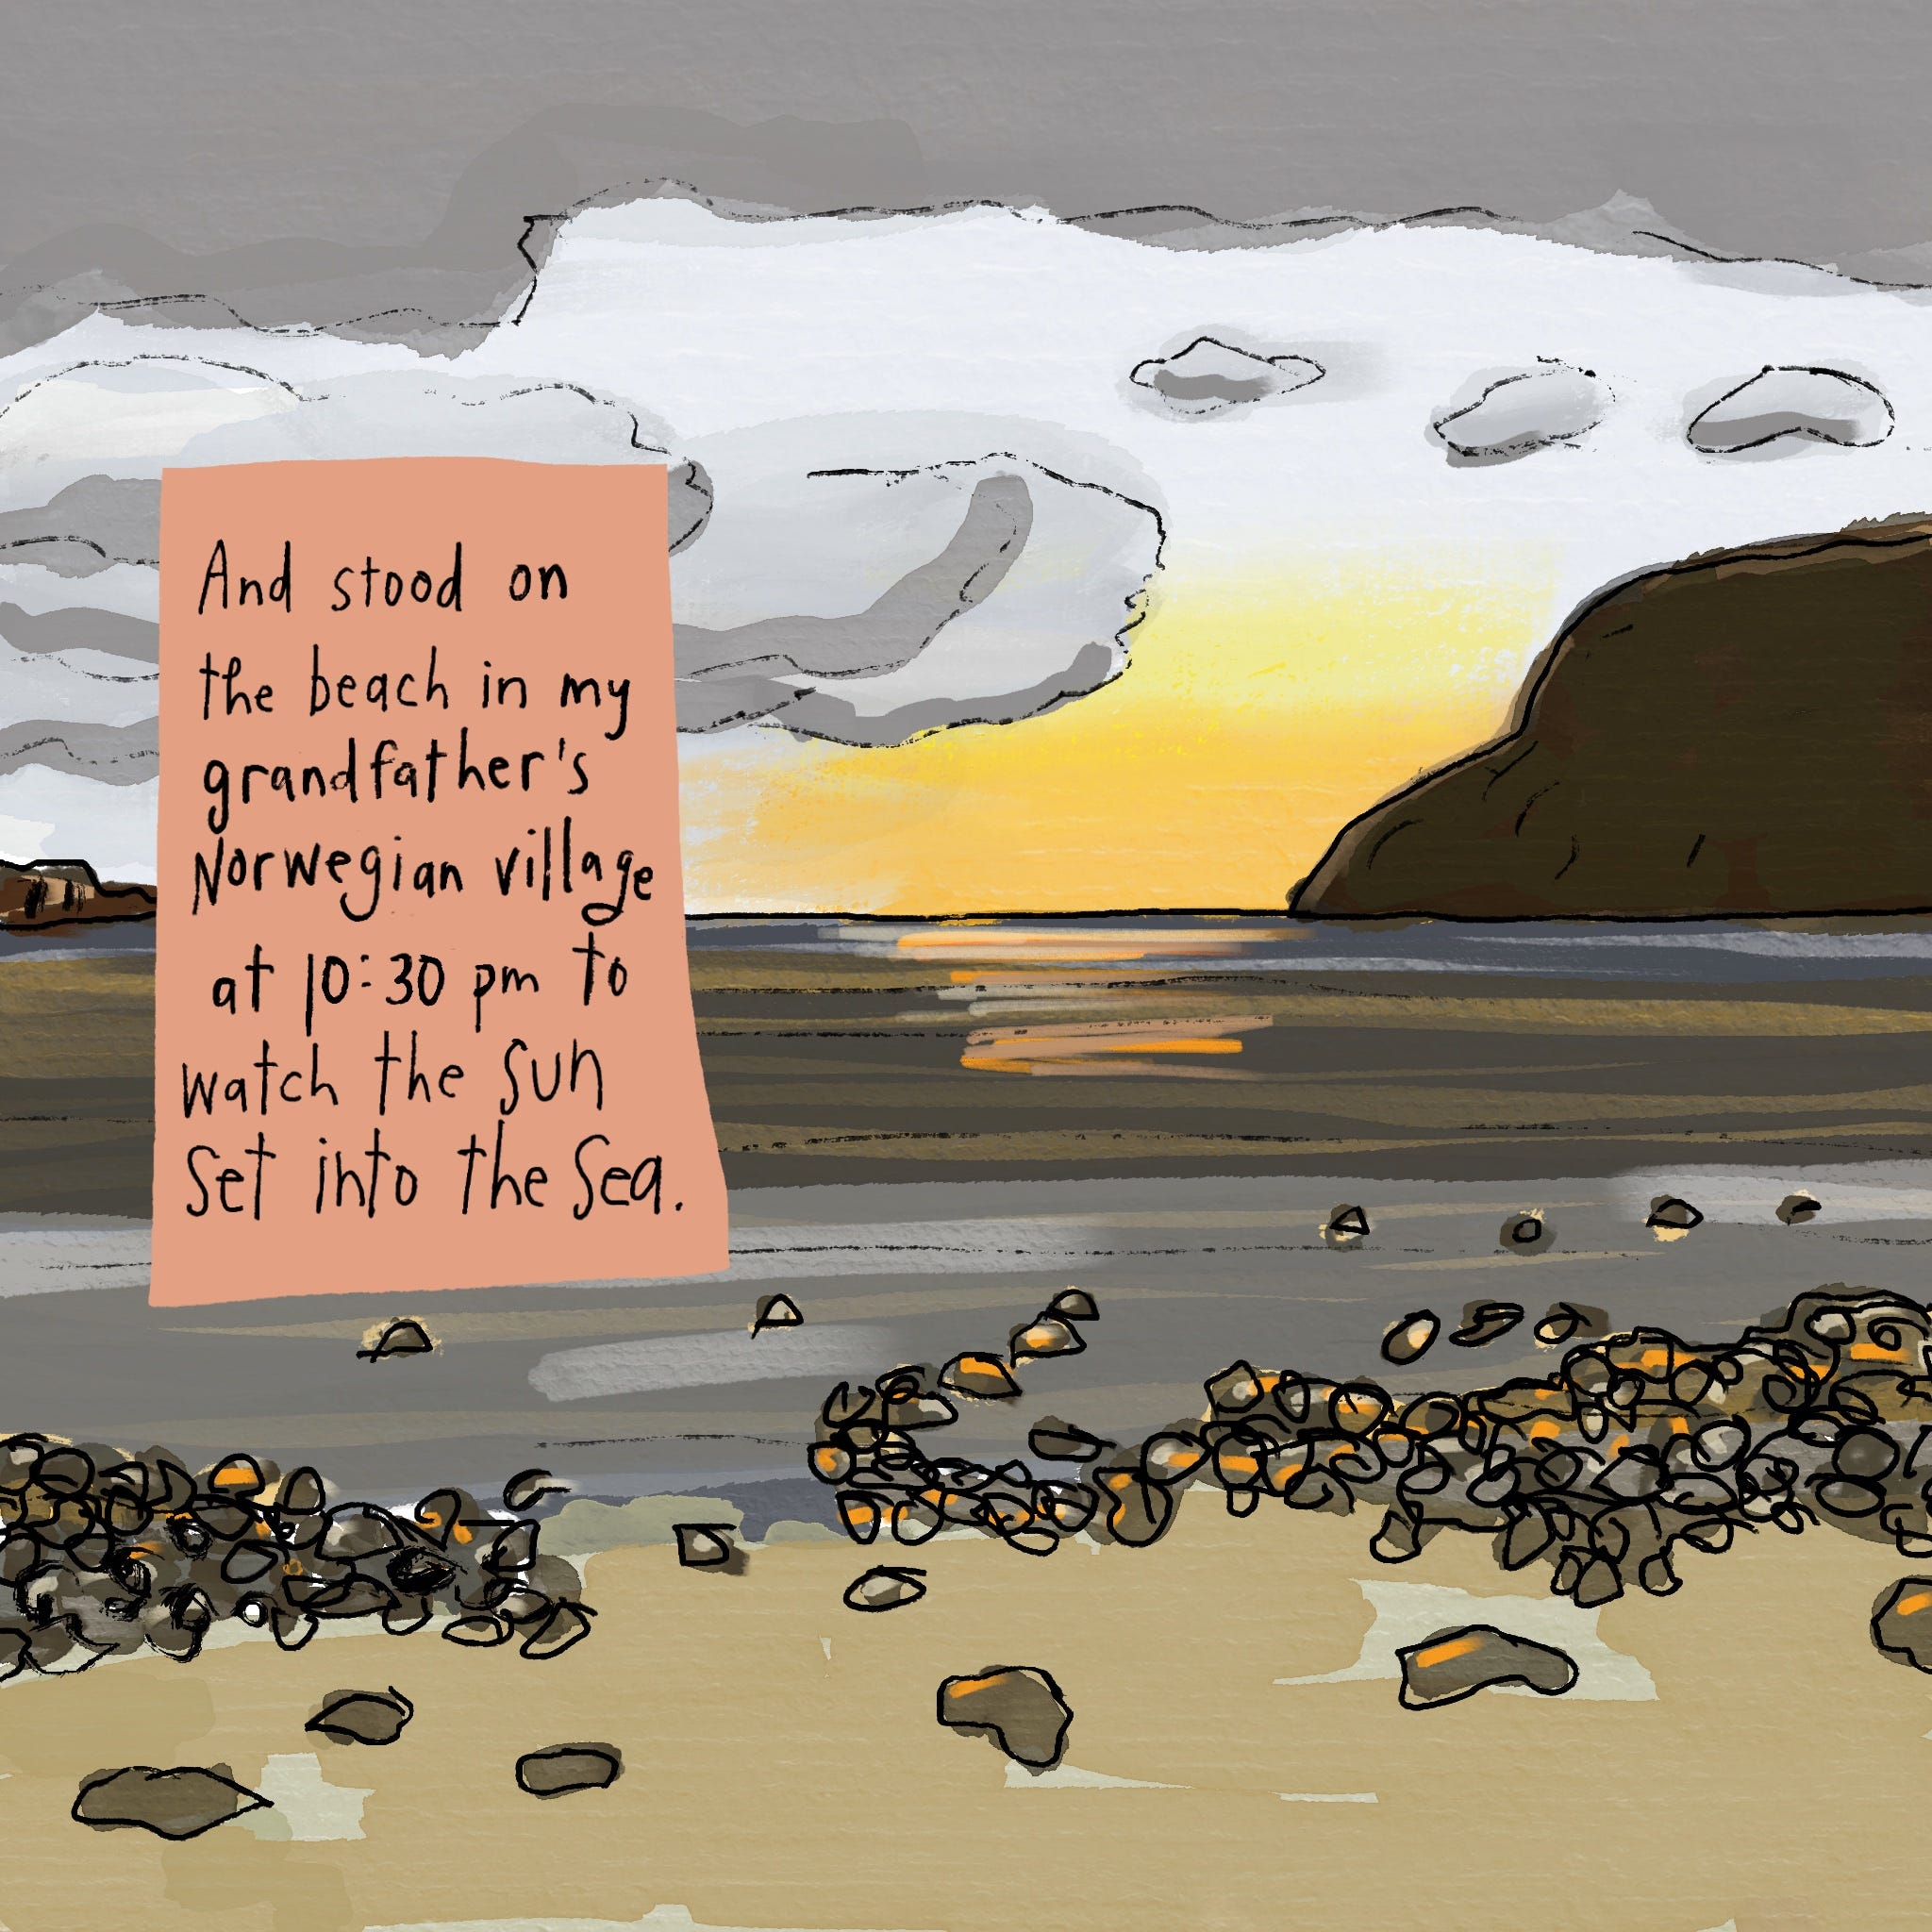 And stood on
the beach in my
grandfather's
Norwegian village
at 10:30 pm to
watch the sun
set into the sea.